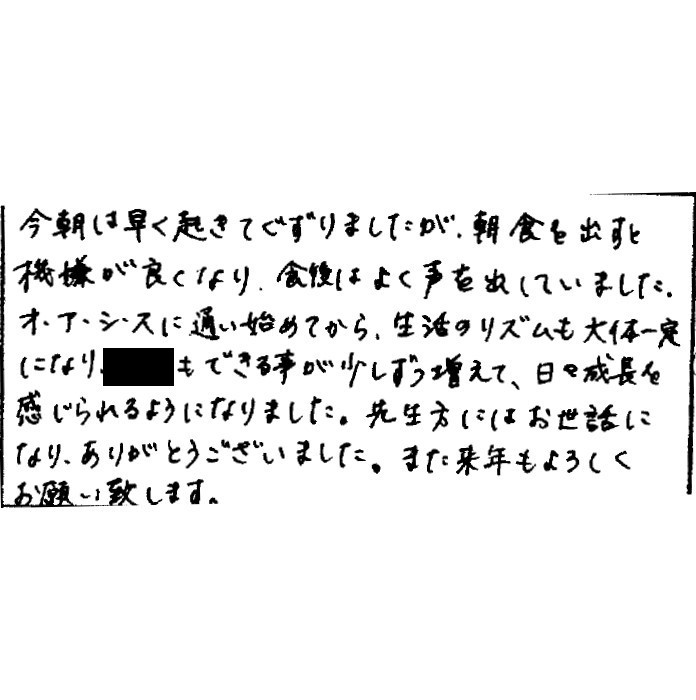 今朝は早く起きてぐずりましたが、朝食を出すと
機嫌が良くなり、食後はよく声を出していました。
オ・ア・シ・スに通い始めてから、生活のリズムも大体一定
になり、もできる事が少しずつ増えて、日々成長を
感じられるようになりました。先生方にはお世話に
なり、ありがとうございました。また来年もよろしく
お願い致します。